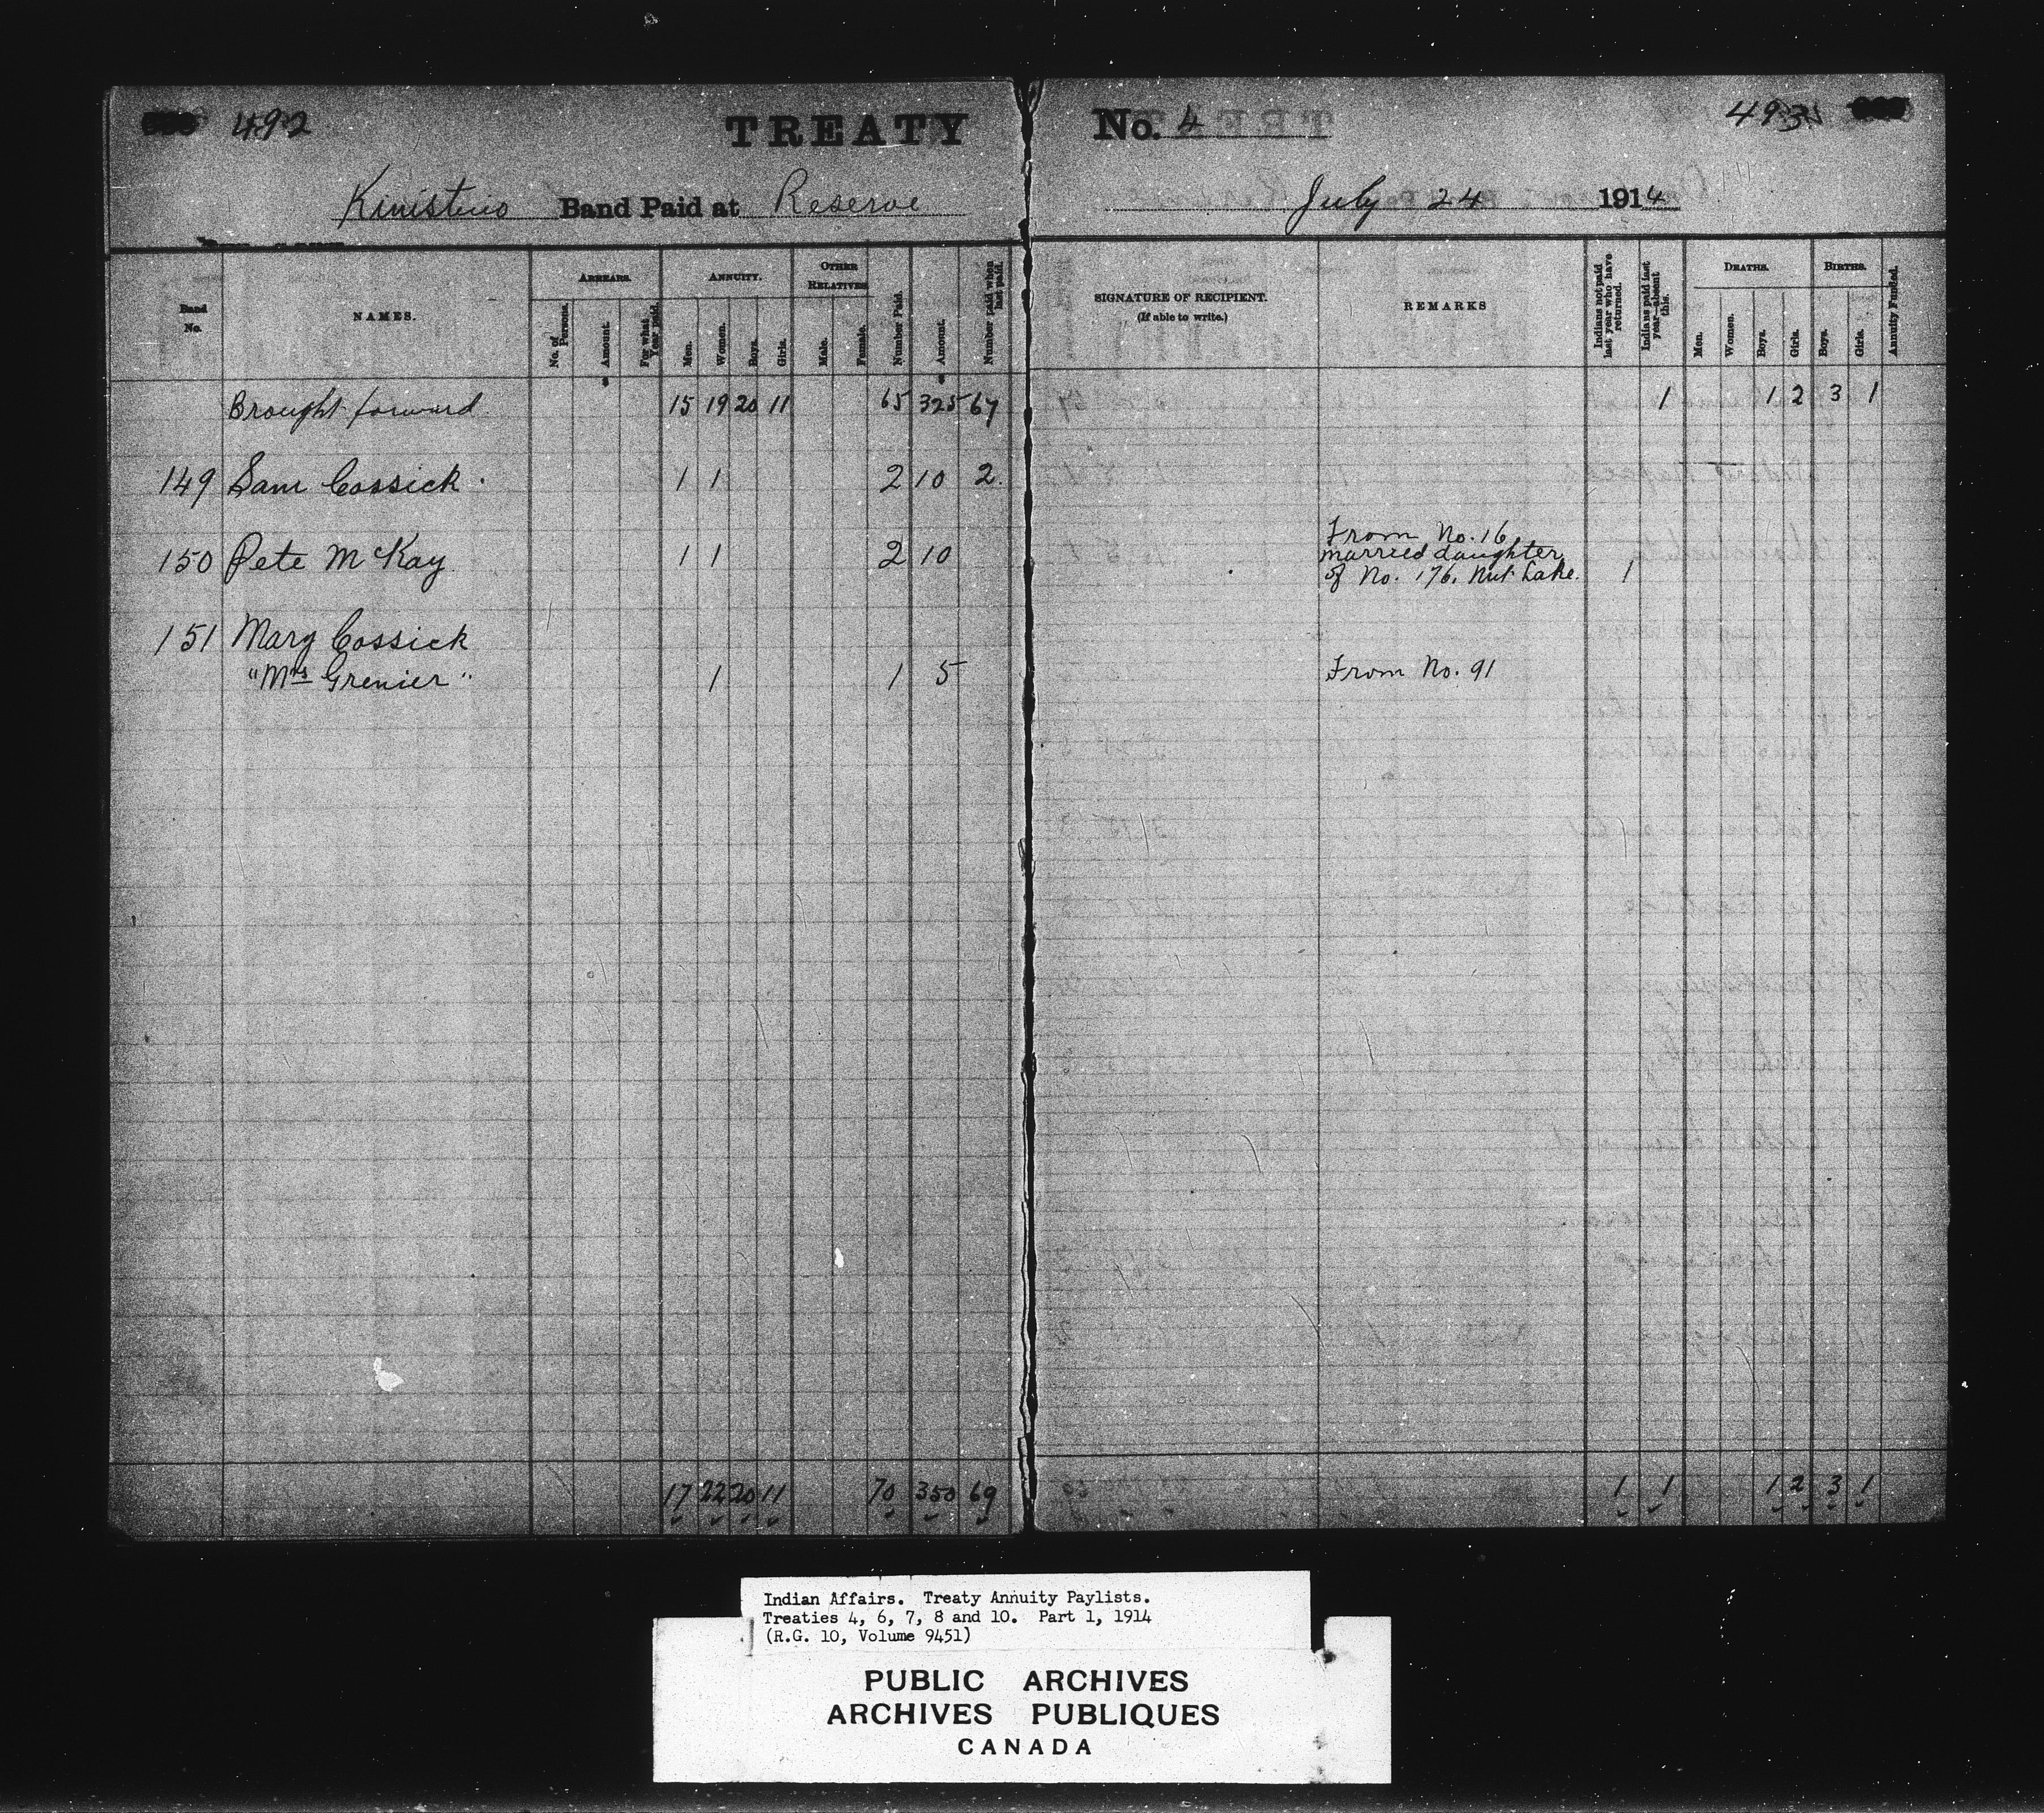 492
TREATY No. 4
493
Kinistino Band Paid at Reserve July 24 1914
Band No.
NAMES.
ARREARS.
No. of Persons.
Amount.
For what Year paid.
ANNUITY.
Men.
Women.
Boys.
Girls.
OTHER RELATIVES
Male.
Female.
Number Paid.
Amount.
Number paid when last paid.
SIGNATURE OF RECIPIENT.
(If able to write.)
REMARKS
Indians not paid last year who have returned.
Indians paid last year—absent this.
DEATHS.
Men.
Women.
Boys.
Girls.
BIRTHS.
Boys.
Girls.
Annuity Funded.
Brought forward 15 19 20 11 65 325 67 1 1 2 3 1
149 Sam Cossick 1 1 2 10 2
150 Pete McKay 1 1 2 10
From No. 16
married daughter
of No. 176, Nut Lake. 1
151 Mary Cossick
"Mrs Grenier" 1 1 5 From No. 91
17 22 20 11 70 350 69 1 1 1 2 3 1
Indian Affairs. Treaty Annuity Paylists.
Treaties 4, 6, 7, 8 and 10. Part 1, 1914
(R.G. 10, Volume 9451)
PUBLIC ARCHIVES
ARCHIVES PUBLIQUES
CANADA